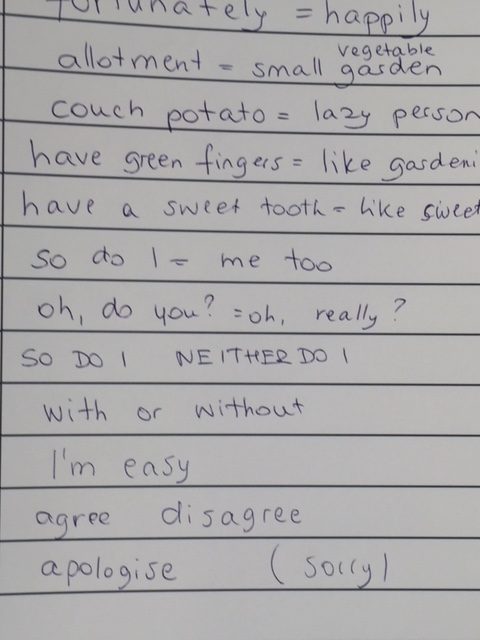 fortunately = happily
vegetable
allotment = small garden
couch potato = lazy person
have green fingers = like gardeni
have a sweet tooth = like sweet
so do I = me too
oh, do you? = oh, really?
SO DO I NEITHER DO I
with or without
I'm easy
agree disagree
apologise (sorry)